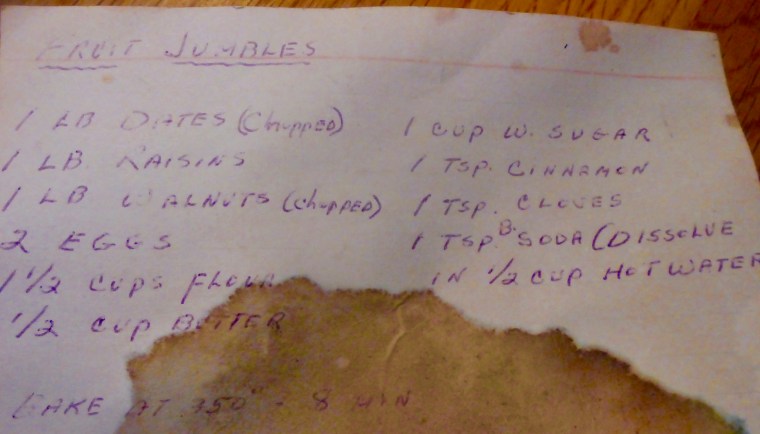 FRUIT JUMBLES
1 LB DATES (Chopped)
1 LB. RAISINS
1 LB WALNUTS (chopped)
2 EGGS
1 1/2 cups FLOUR
1/2 cup BUTTER
1 CUP W. SUGAR
1 TSP. CINNAMON
1 TSP. CLOVES
1 TSP. B. SODA (DISSOLVE
IN 1/2 CUP HOT WATER
BAKE AT 350° - 8 MIN